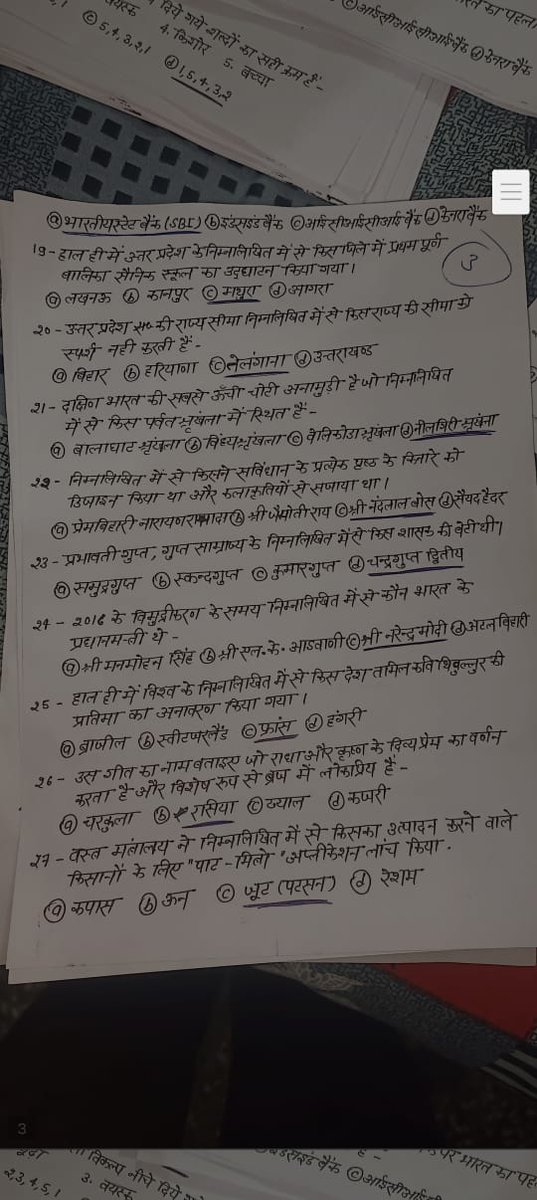 वयस्क
दिये गये शब्दों का सही क्रम है -
4. किशोर 5. बच्चा
ⓒ 5,4,3,2,1
ⓓ 1,5,4,3,2
ⓒ आईसीआईसीआई बैंक ⓓ केनरा बैंक
ⓐ भारतीय स्टेट बैंक (SBI) ⓑ इंडसइंड बैंक ⓒ आईसीआईसीआई बैंक ⓓ केनरा बैंक
3
19 - हाल ही में उत्तर प्रदेश के निम्नलिखित में से किस जिले में प्रथम पूर्ण
बालिका सैनिक स्कूल का उद्घाटन किया गया।
ⓐ लखनऊ ⓑ कानपुर ⓒ मथुरा ⓓ आगरा
20 - उत्तर प्रदेश की राज्य सीमा निम्नलिखित में से किस राज्य की सीमा को
स्पर्श नही करती हैं -
ⓐ बिहार ⓑ हरियाणा ⓒ तेलंगाना ⓓ उत्तराखण्ड
21 - दक्षिण भारत की सबसे ऊँची चोटी अनामुड़ी है जो निम्नलिखित
में से किस पर्वत श्रृंखला में स्थित हैं -
ⓐ बालाघाट श्रृंखला ⓑ विंध्य श्रृंखला ⓒ वेलिकोंडा श्रृंखला ⓓ नीलगिरी श्रृंखला
22 - निम्नलिखित में से किसने संविधान के प्रत्येक पृष्ठ के किनारे को
डिजाइन किया था और कलाकृतियों से सजाया था।
ⓐ प्रेम बिहारी नारायण रायजादा ⓑ श्री जैमोती राय ⓒ श्री नंदलाल बोस ⓓ सैयद हैदर
23 - प्रभावती गुप्त, गुप्त साम्राज्य के निम्नलिखित में से किस शासक की बेटी थी।
ⓐ समुद्रगुप्त ⓑ स्कन्दगुप्त ⓒ कुमारगुप्त ⓓ चन्द्रगुप्त द्वितीय
24 - 2016 के विमुद्रीकरण के समय निम्नलिखित में से कौन भारत के
प्रधानमन्ती थे -
ⓐ श्री मनमोहन सिंह ⓑ श्री एल. के. आडवाणी ⓒ श्री नरेन्द्र मोदी ⓓ अटल बिहारी
25 - हाल ही में विश्व के निम्नलिखित में से किस देश तामिल कवि थिवुल्लुर की
प्रतिमा का अनावरण किया गया।
ⓐ ब्राजील ⓑ स्वीटजरलैंड ⓒ फ्रांस ⓓ हंगरी
26 - उस गीत का नाम बताइए जो राधा और कृष्ण के दिव्य प्रेम का वर्णन
करता है और विशेष रूप से ब्रज में लोकप्रिय हैं -
ⓐ चरकुला ⓑ रासिया ⓒ ख्याल ⓓ कजरी
27 - वस्त मंत्रालय ने निम्नलिखित में से किसका उत्पादन करने वाले
किसानों के लिए "पाट - मित्रो" अप्लीकेशन लांच किया.
ⓐ कपास ⓑ ऊन ⓒ जूट (पटसन) ⓓ रेशम
3
3. वयस्क
2,3,4,5,1
ⓒ आईसीआईसीआई बैंक